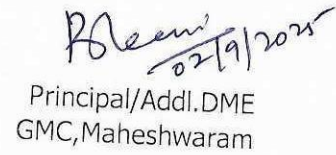 02/9/2025
Principal/Addl.DME
GMC,Maheshwaram